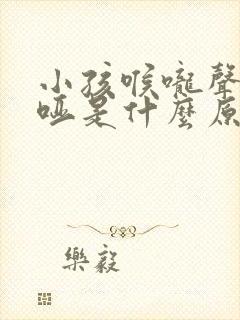 小孩喉嚨聲
啞是什麼原
樂毅